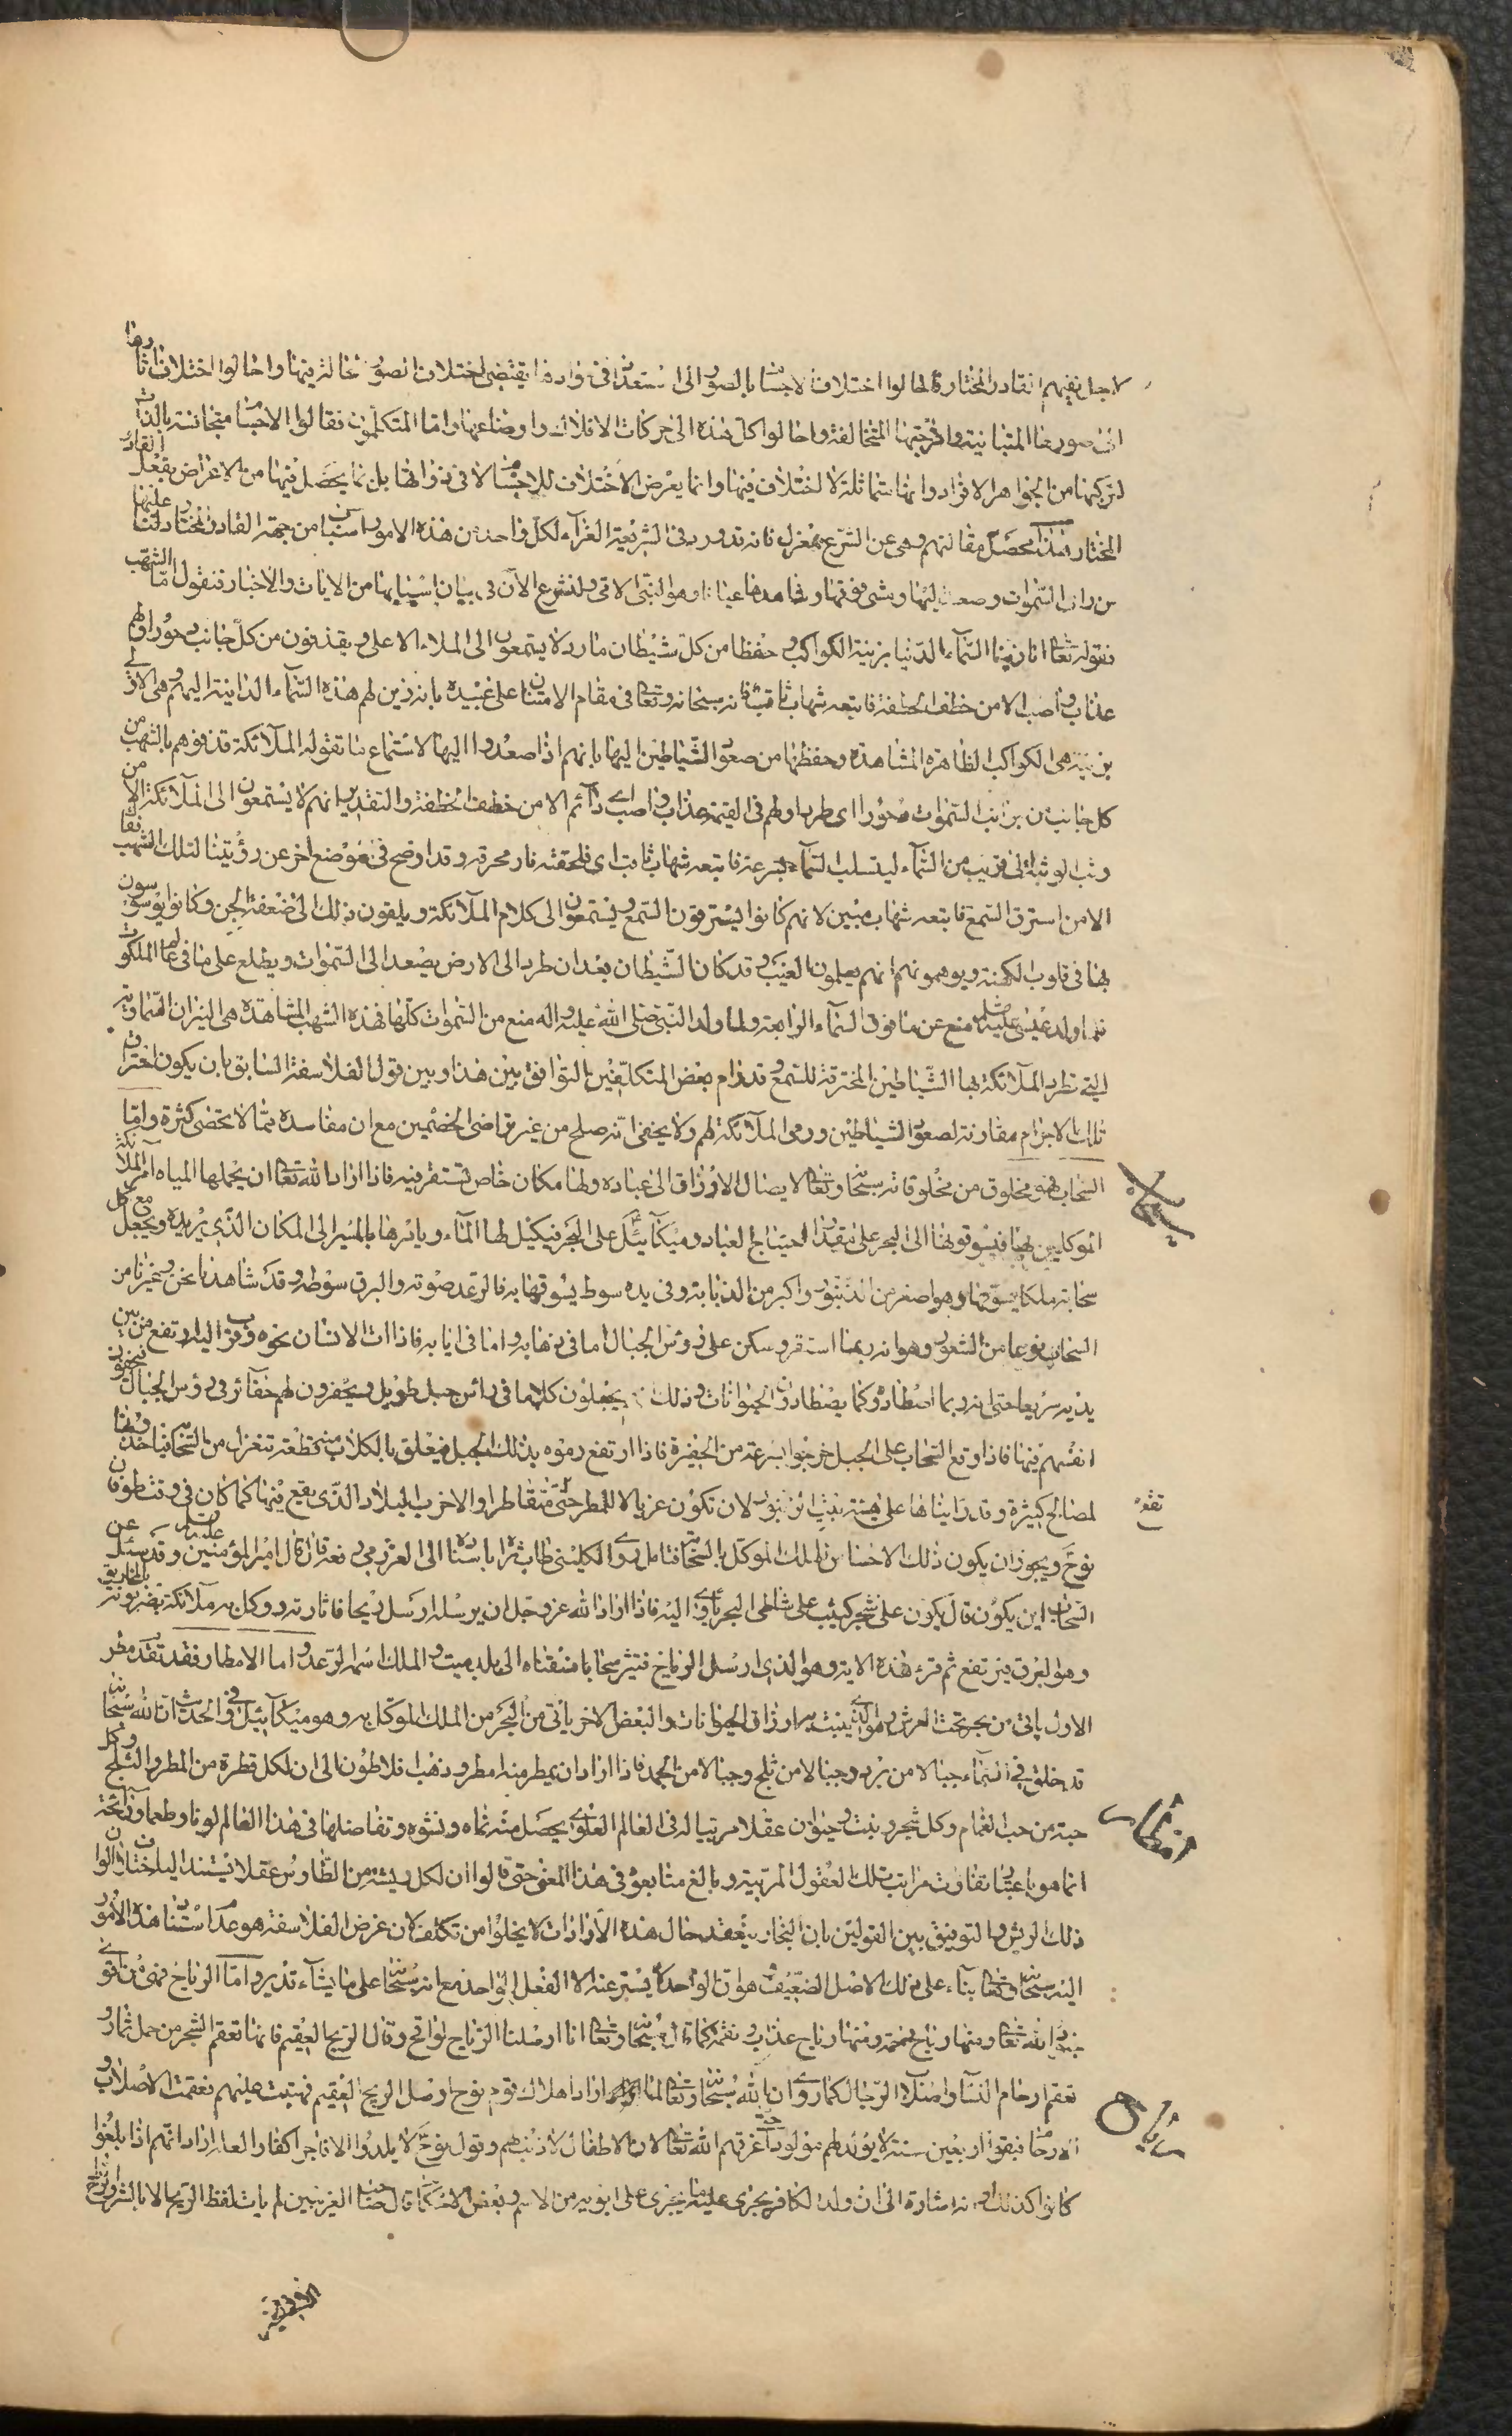 لاجل نفيهم القادر المختار قالوا اختلاف الاجسام بالصور الى استعداد في موادها يقتضي اختلاف الصور الحالة فيها واحالوا اختلاف آثارها
الى صورها المتباينة وامزجتها المتخالفة واحالوا كل هذه الى حركات الافلاك واوضاعها واما المتكلمون فقالوا الاجسام متجانسة بالذات
لتركبها من الجواهر الافراد وانها متماثلة لا اختلاف فيها وانما يعرض الاختلاف للاجسام لا في ذواتها بل بما يحصل فيها من الاعراض بفعل القادر
المختار هذا محصل مقالتهم وهي عن الشرع بمعزل فانه قد ورد في الشريعة الغراء لكل واحد من هذه الامور اسباب من جهة القادر المختار دلنا عليها
من راى السموات وصعد اليها ومشى فوقها وشاهدها عيانا وهو النبي الامي ولنشرع الآن في بيان اسبابها من الايات والاخبار فنقول اما الشهب
فقوله تعالى انا زينا السماء الدنيا بزينة الكواكب وحفظا من كل شيطان مارد لا يسمعون الى الملاء الاعلى ويقذفون من كل جانب دحورا ولهم
عذاب واصب الا من خطف الخطفة فاتبعه شهاب ثاقب فانه سبحانه وتعالى في مقام الامتنان على عبيده بانه زين لهم هذه السماء الدانية اليهم وهي الاولى
بزينة هي الكواكب الظاهرة المشاهدة وحفظها من صعود الشياطين اليها بانهم اذا صعدوا اليها لاستماع ما تقوله الملائكة قذفوهم بالشهب من
كل جانب من جوانب السموات دحورا اي طردا ولهم في القيمة عذاب واصب اي دائم الا من خطف الخطفة والتقدير انهم لا يستمعون الى الملائكة الا من
وثب الوثبة الى قريب من السماء ليتسلب السماء بسرعة فاتبعه شهاب ثاقب اي فلحقته نار محرقة وقد اوضح في موضع اخر عن رؤيتنا لتلك الشهب فقال
الا من استرق السمع فاتبعه شهاب مبين لانهم كانوا يسترقون السمع ويستمعون الى كلام الملائكة ويلقون ذلك الى ضعفة الجن وكانوا يوسوسون
بها في قلوب الكهنة ويوهمونهم انهم يعلمون الغيب وقد كان الشيطان بعد ان طرد الى الارض يصعد الى السموات ويطلع على ما في عالم الملكوت
فلما ولد عيسى عليه السلام منع عن ما فوق السماء الرابعة ولما ولد النبي صلى الله عليه واله منع من السموات كلها فهذه الشهب المشاهدة هي النيران السماوية
التي تطرد الملائكة بها الشياطين المسترقة للسمع وقد رام بعض المتكلفين بالتوافق بين هذا وبين قول الفلاسفة السابق بان يكون احتراق
تلك الاجرام مقارنة لصعود الشياطين ورمي الملائكة لهم ولا يخفى انه صلح من غير تراضي الخصمين مع ان مفاسده مما لا تحصى كثرة واما
السحاب فهو مخلوق من مخلوقاته سبحانه وتعالى لايصال الارزاق الى عباده ولها مكان خاص تستقر فيه فاذا اراد الله تعالى ان يحملها المياه امر الملائكة
الموكلين بها فيسوقونها الى البحر على قدر احتياج العباد وميكائيل على البحر فيكيل لها الماء ويامرها بالمسير الى المكان الذي يريده ويجعل مع كل
سحابة ملكا يسوقها وهو اصغر من الزنبور واكبر من الذبابة وفي يده سوط يسوقها به فالرعد صوته والبرق سوطه وقد شاهدنا نحن وغيرنا من
السحاب نوعا من الشعور وهو انه ربما استقر وسكن على رؤس الجبال اما في ذهابه واما في ايابه فاذا اتى الانسان نحوه وقرب اليه ارتفع من بين
يديه سريعا حتى انه ربما اصطادوه كما يصطادون الحيوانات وذلك انهم يجعلون كلابا في رأس جبل طويل ويحفرون لهم حفائر في رؤس الجبال فيخفون
انفسهم فيها فاذا وقع السحاب على الجبل خرجوا بسرعة من الحفيرة فاذا ارتفع رموه بذلك الحبل فيعلق بالكلاب منه قطعة تنغزل من السحاب فيأخذونها وفيها
لمصالح كثيرة وقد رايناها على هيئة بيت الزنبور لان تكون غربالا للمطر حتى يقع متقاطرا والا خرب البلاد الذي يقع فيها كما كان في وقت طوفان
نوح ويجوز ان يكون ذلك الاحساس من الملك الموكل بالسحاب فتامل روى الكليني طاب ثراه باسناده الى العرزمي رفعه قال قال امير المؤمنين عليه السلام وقد سئل عن
السحاب اين يكون قال يكون على شجر كثيب على شاطئ البحر يأوي اليه فاذا اراد الله عز وجل ان يرسله ارسل ريحا فاثارته ووكل به ملائكة يضربونه بالمخاريق
وهو البرق فيرتفع ثم قرء هذه الاية وهو الذي ارسل الرياح فتثير سحابا فسقناه الى بلد ميت والملك اسمه الرعد واما الامطار فقد تقدم مطر
الاول يأتي من بحر تحت العرش وهو الذي ينبت به ارزاق الحيوانات والبعض الاخر يأتي من البحر من الملك الموكل به وهو ميكائيل وفي الحديث ان الله سبحانه
قد خلق في السماء جبالا من برد وجبالا من ثلج وجبالا من الجمد فاذا اراد ان يمطر منه امطر وذهب افلاطون الى ان لكل قطرة من المطر والثلج وكل
حبة من حب الغمام وكل شجر ونبت وحيوان عقلا مربيا له في العالم العلوي يحصل منه نماه ونشوه وتفاضلها في هذا العالم لونا وطعما ورائحة
انما هو باعتبار تفاوت مراتب تلك العقول المربية وبالغ متابعوه في هذا المعنى حتى قالوا ان لكل ريشة من الطاوس عقلا يستند اليه اختلاف الوان
ذلك الريش والتوفيق بين القولين بان البخار ينعقد حال هذه الارادات لا يخلوا من تكلف لان غرض الفلاسفة هو عدم استناد هذه الامور
اليه سبحانه وتعالى بناء على ذلك الاصل الضعيف هو ان الواحد لا يصدر عنه الا الفعل الواحد مع انه سبحانه على ما يشاء قدير واما الرياح فهي من اقوى
جنود الله تعالى ومنها رياح رحمة ومنها رياح عذاب ونقمة كما قال سبحانه وتعالى انا ارسلنا الرياح لواقح وقال الريح العقيم فانها تعقم الشجر من حمل ثماره
تعقم ارحام النساء واصلاب الرجال كما روى ان الله سبحانه وتعالى لما اراد اهلاك قوم نوح ارسل الريح العقيم فهبت عليهم فعقمت الاصلاب و
الارحام فبقوا اربعين سنة لا يولد لهم مولود حتى اغرقهم الله تعالى لان الاطفال لا ذنب لهم وقول نوح لا يلدوا الا فاجرا كفارا لعله اراد انهم اذا بلغوا
كانوا كذلك او انه اشارة الى ان ولد الكافر يجري عليه ما يجري على ابويه من الاسم وبعض الاحكام قال صاحب الغريبين لم يأت لفظ الريح الا بالشر والرياح
سحاب
تقع
امطار
رياح